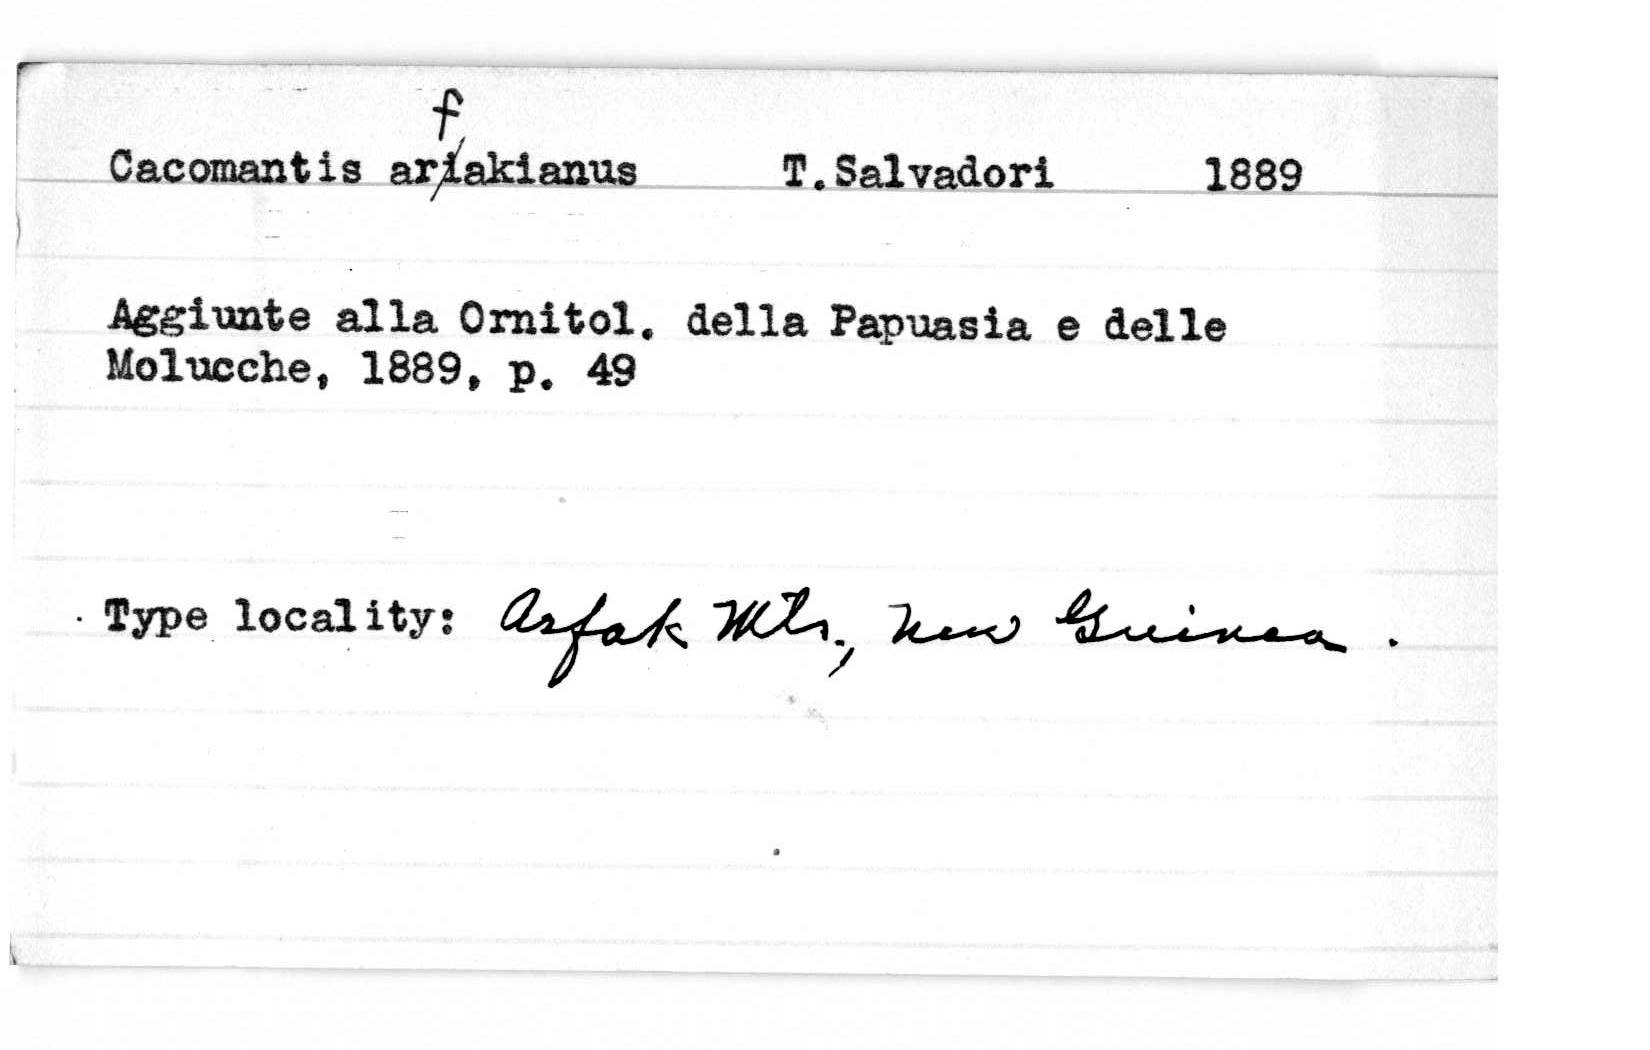 f
Cacomantis ariakianus T.Salvadori 1889
Aggiunte alla Ornitol. della Papuasia e delle
Molucche, 1889, p. 49
Type locality: Arfak Mts., New Guinea.